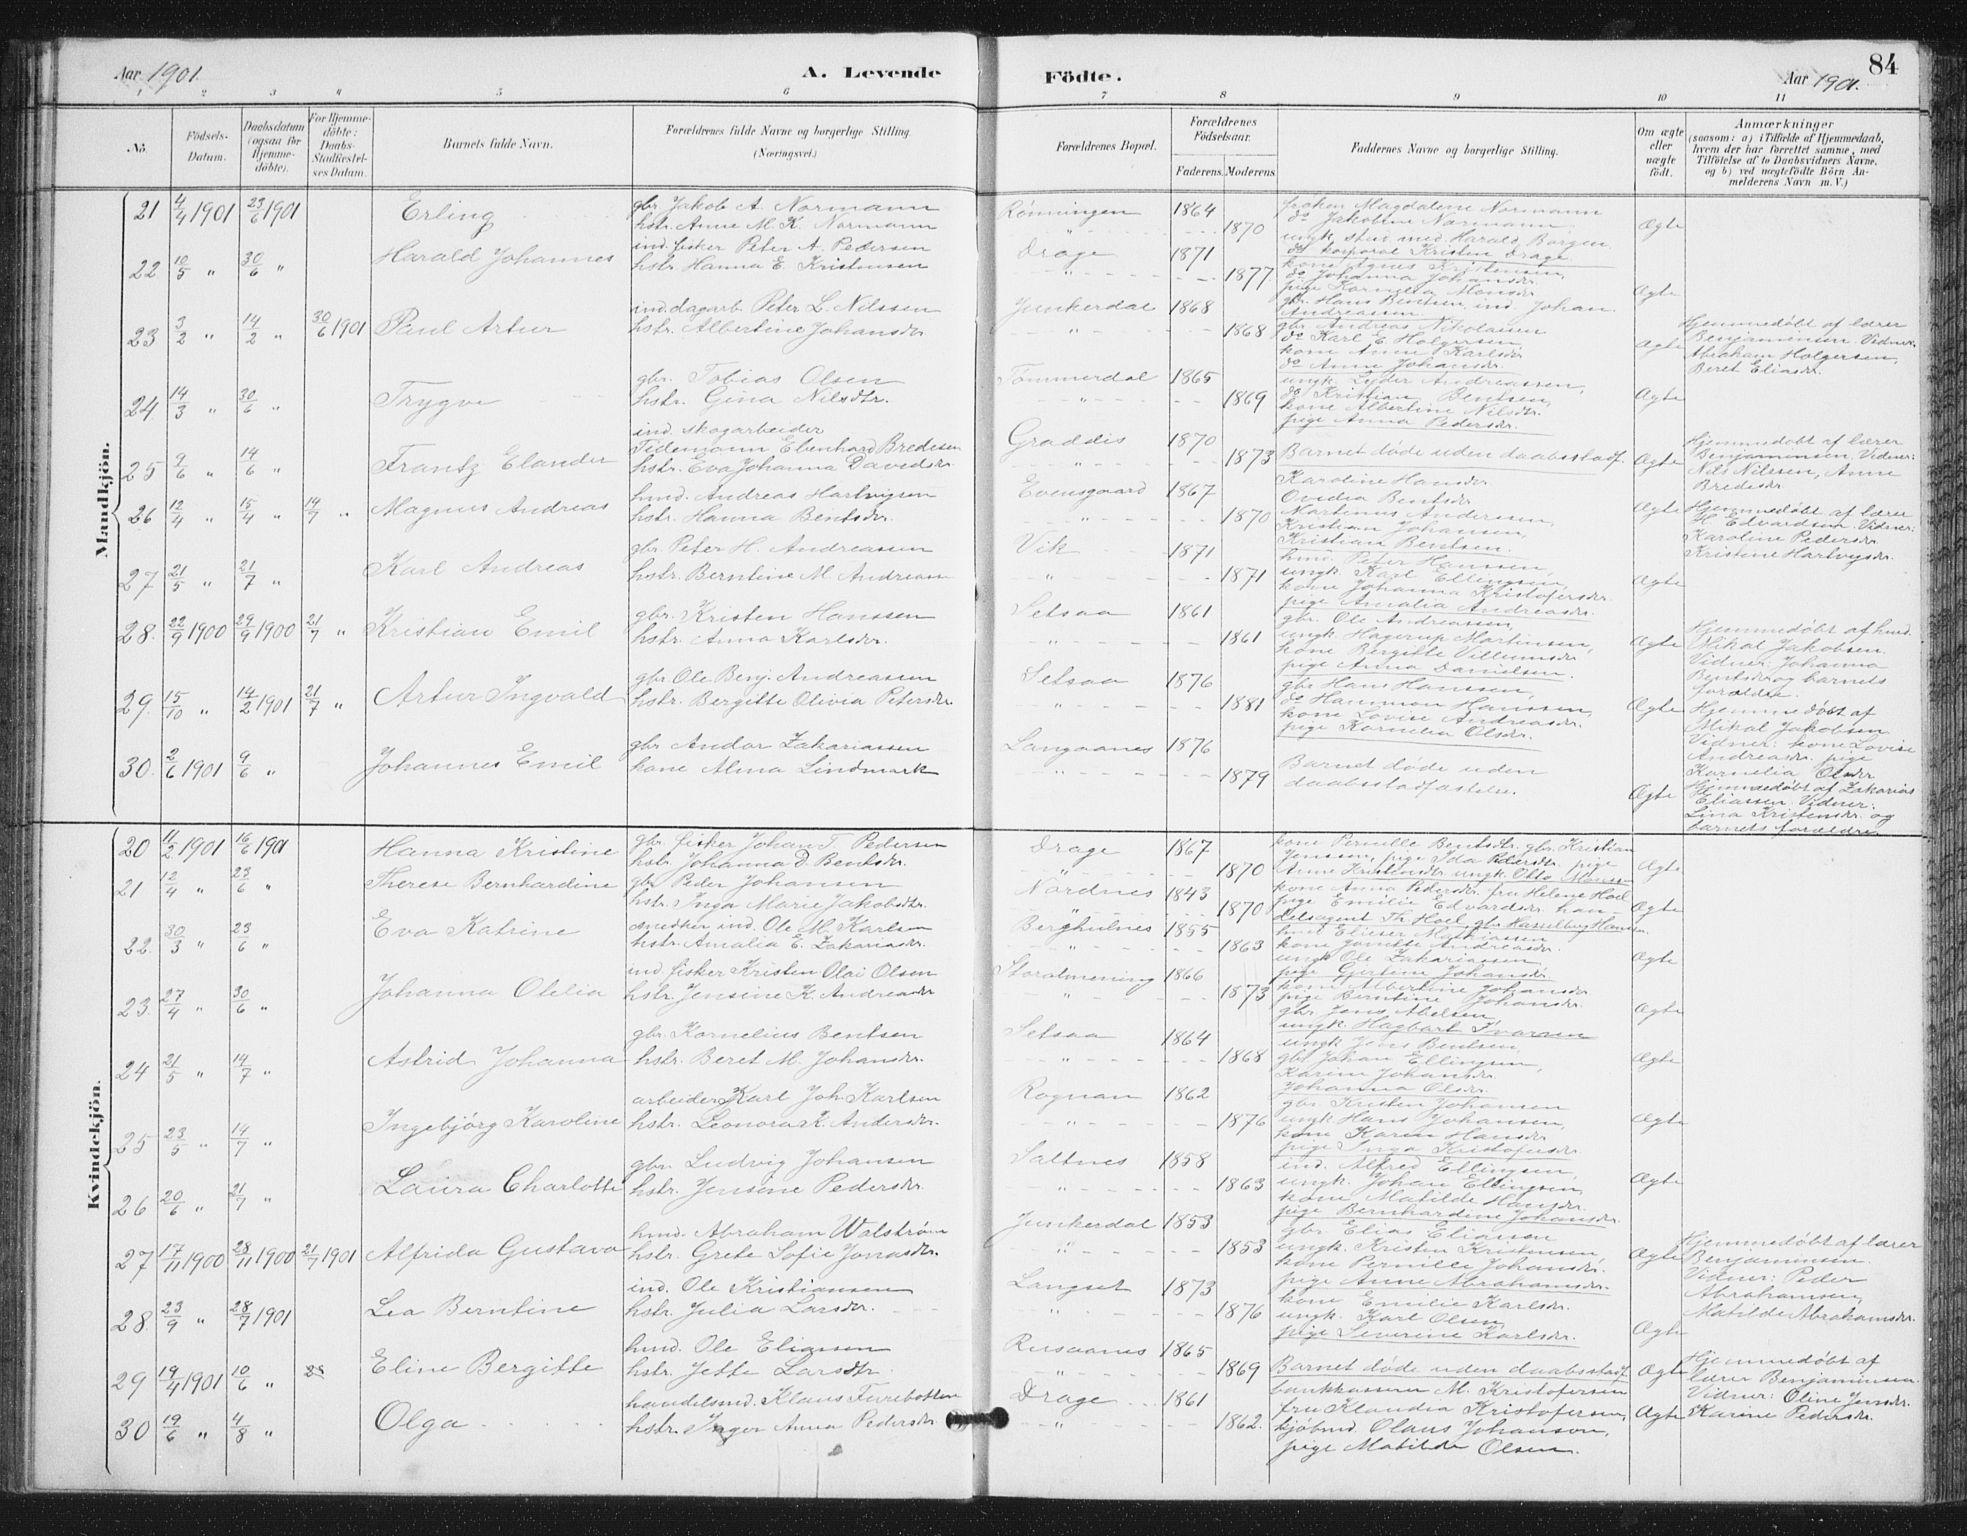 Aar 1901. A. Levende Födte. Aar 1901. 84
1 2 3 4 5 6 7 8 9 10 11
No. Födsels-Datum. Daabsdatum (ogsaa for Hjemme-döbte). For Hjemme-döbte: Daabs-Stadfæstel-ses Datum. Barnets fulde Navn. Forældrenes fulde Navne og borgerlige Stilling. (Næringsvei.) Forældrenes Bopæl. Forældrenes Födselsaar. Faderens. Moderens. Faddernes Navne og borgerlige Stilling. Om ægte eller uægte födt. Anmærkninger (saasom: a) i Tilfælde af Hjemmedaab, hvem der har forrettet samme, med Tilföielse af to Daabsvidners Navne, og b) ved uægtefödte Börn An-melderens Navn m. V.)
Mandkjön.
21 4/4 1901 23/6 1901 Erling
gbr. Jakob A. Normann
hstr. Anne M. K. Normann
Rønningen 1864 1870
frøken Magdalene Normann
do Jakobine Normann
ungk. stud. med. Harald Borgen
do korporal Kristen Drage
Ægte
22 10/5 " 30/6 " Harald Johannes
ind. fisker Peter A. Pedersen
hstr. Hanna E. Kristensen
Drage 1871 1877
kone Agnes Kristensen,
do Johanna Johansdr.
pige Kornelia Monsdr.
gbr. Hans Bentsen, ind. Johan
Andreassen
Ægte
23 3/2 " 14/2 " 30/6 1901 Paul Artur
ind. dagarb. Peter L. Nilssen
hstr. Albertine Johansdr.
Junkerdal 1868 1868
gbr. Andreas Nikolaisen
do Karl E. Holgersen
kone Anne Karlsdr.
do Anne Johansdr.
Ægte
Hjemmedøbt af lærer
Benjaminsen. Vidner:
Abraham Holgersen,
Beret Eliasdr.
24 14/3 " 30/6 " Trygve
gbr. Tobias Olsen
hstr. Gina Nilsdtr.
Tømmerdal 1865 1869
ungk. Lyder Andreassen,
do Kristian Bentsen,
kone Albertine Nilsdtr.
pige Anna Pedersdr.
Ægte
25 9/6 " 14/6 " Frantz Elander
ind. skogarbeider
Tidemann Ebenhard Bredesen
hstr. Eva Johanna Davidsdr.
Graddis 1870 1873
Barnet døde uden daabsstadf.
Ægte
Hjemmedøbt af lærer
Benjaminsen, Vidner:
Nils Nilssen, Anne
Bredesdr
26 12/4 " 15/4 " 14/7 " Magnus Andreas
hmd. Andreas Hartvigsen
hstr. Hanna Bentsdr.
Evensgaard 1867 1870
Karoline Hansdr
Ovidia Bentsdr
Martinus Andersen,
Kristian Johansen,
Kristian Bentsen.
Ægte
Hjemmedøbt af lærer
H. Edvardsen. Vidner:
Karoline Pedersdr
Kristine Hartvigsdr.
27 21/5 " 21/7 " Karl Andreas
gbr. Peter H. Andreassen
hstr. Berntine M. Andreassen
Vik 1871 1871
hmd. Peter Hanssen,
ungk. Karl Ellingsen,
kone Johanna Kristofersdr.
pige Amalia Andreasdr.
Ægte
28. 22/9 1900 29/9 1900 21/7 " Kristian Emil
gbr. Kristen Hanssen
hstr. Anna Karlsdr.
Setsaa 1861 1861
gbr. Ole Andreassen,
ungk. Hagerup Martinsen,
kone Bergitte Villumsdr
pige Anna Danielsen.
Ægte
Hjemmedøbt af hmd.
Mikal Jakobsen.
Vidner: Johanna
Bentsdr og barnets
forældre.
29. 15/10 " 14/2 1901 21/7 " Artur Ingvald
gbr. Ole Benj. Andreassen
hstr. Bergitte Olivia Petersdr.
Setsaa 1876 1881
gbr. Hans Hanssen,
do Hammon Hanssen,
kone Lovise Andreasdr.
pige Kornelia Olsdr.
Ægte
Hjemmedøbt af
Mikal Jakobsen
Vidner: kone Lovise
Andreasdr. pige
Kornelia Olsdr
30. 2/6 1901 9/6 " Johannes Emil
gbr. Andor Zakariassen
kone Alma Lindmark
Langaanes 1876 1879
Barnet døde uden
daabsstadfæstelse.
Ægte
Hjemmedøbt af Zakarias
Eliassen. Vidner:
Lina Kristensdr. og
barnets forældre
Kvindekjön.
20 11/2 1901 16/6 1901 Hanna Kristine
gbr. fisker Johan T. Pedersen
hstr. Johanna D. Bentsdr.
Drage 1867 1870
kone Pernille Bentsdtr. gbr. Kristian
Jenssen, pige Ida Pedersdr. pige
Anne Kristensdr. ungk. Otto Monssen
Ægte
21 12/4 " 23/6 " Therese Bernhardine
gbr. Peder Johansen
hstr. Inga Marie Jakobsdtr.
Nordnes 1843 1870
kone Anna Pedersdr. fru Helene Hoel
pige Emilie Edvardsdr. han-
delsagent Th. Hoel, gbr. Hasselberg Hansen.
Ægte
22. 30/3 " 23/6 " Eva Katrine
snedker ind. Ole M. Karlsen
hstr. Amalia E. Zakariasdr.
Berghulnes 1855 1863
hmd. Elieser Mathiassen
kone Jonette Andreasdr.
ungk. Ole Zakariassen,
pige Gjertine Johansdr.
Ægte
23. 27/4 " 30/6 " Johanna Olelia
ind. fisker Kristen Olai Olsen
hstr. Jensine K. Andreasdr
Storalmening 1866 1873
kone Albertine Johansdr
pige Berntine Johansdr.
gbr. Jens Abelsen
ungk. Hagbart Ivarsen
Ægte
24 21/5 " 14/7 " Astrid Johanna
gbr. Kornelius Bentsen
hstr. Beret M. Johansdr.
Setsaa 1864 1868
ungk. Jens Bentsen
gbr. Johan Ellingsen,
Karine Johansdr.
Johanna Olsdr.
Ægte
25 23/5 " 14/7 " Ingebjørg Karoline
arbeider Karl Joh. Karlsen
hstr. Leonora K. Andersdr.
Rognan 1862 1876
gbr. Kristen Johansen
ungk. Hans Johansen,
kone Karen Hansdr
pige Inga Kristofersdr.
Ægte
26 20/6 " 21/7 " Laura Charlotte
gbr. Ludvig Johansen
hstr. Jensine Pedersdr.
Saltnes 1858 1863
ind. Alfred Ellingsen,
ungk. Johan Ellingsen,
kone Matilde Hansdr.
pige Bernhardine Johansdr.
Ægte
27 17/11 1900 28/11 1900 21/7 1901 Alfrida Gustava
hmd. Abraham Walstrøm
hstr. Grete Sofie Jonasdr.
Junkerdal 1853 1853
gbr. Elias Eliassen
ungk. Kristen Kristensen,
kone Pernille Johansdr.
pige Anne Abrahamsdr.
Ægte
Hjemmedøbt af lærer
Benjaminsen.
Vidner: Peder
Abrahamsen,
Matilde Abrahamsdr.
28. 23/9 " 28/7 1901 Lea Berntine
ind. Ole Kristiansen
hstr. Julia Larsdr.
Langset 1873 1876
kone Emilie Karlsdr.
ungk. Karl Olsen,
pige Severine Karlsdr.
Ægte
29 19/4 1901 10/6 " 28 Eline Bergitte
hmd. Ole Eliassen
hstr. Jette Larsdtr.
Rusaanes 1865 1869
Barnet døde uden daabsstadf.
Ægte
Hjemmedøbt af
lærer Benjaminsen.
Vidner: Oline Jensdr.
Karine Pedersdr.
30 19/6 " 4/8 " Olga
handelsmd. Klaus Furebotten
hstr. Inger Anna Pedersdr.
Drage 1861 1862.
bankkasserer M. Kristofersen
fru Klaudia Kristofersen,
kjøbmd. Olaus Johansen,
pige Matilde Olsen.
Ægte